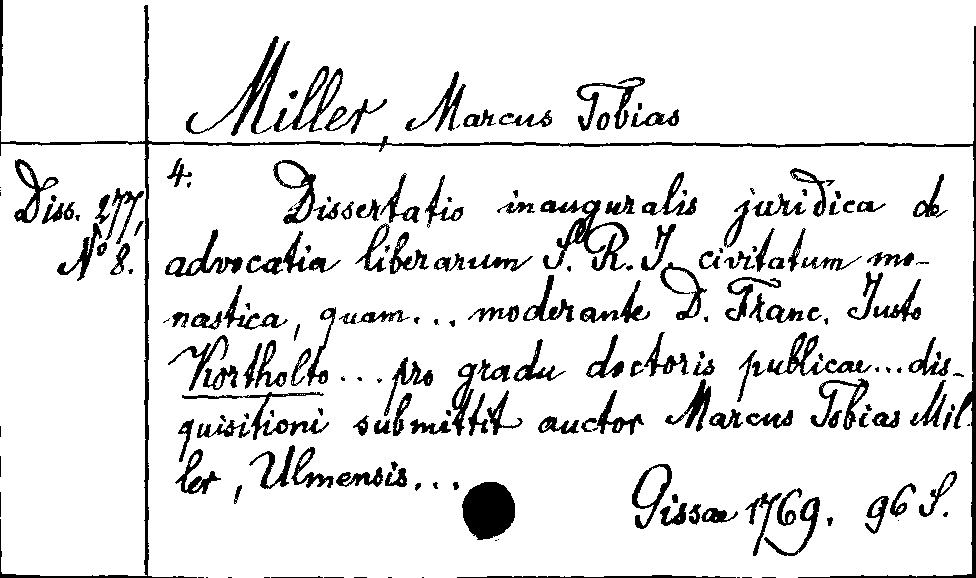 Miller, Marcus Tobias
Diss. 277,
Nº 8.
4:
Dissertatio inauguralis juridica de
advocatia liberarum S. R. I. civitatum mo-
nastica, quam... moderante D. Franc. Justo
Kortholto... pro gradu doctoris publicae... dis-
quisitioni submittit auctor Marcus Tobias Mil-
ler, Ulmensis...
Gissae 1769. 96 S.